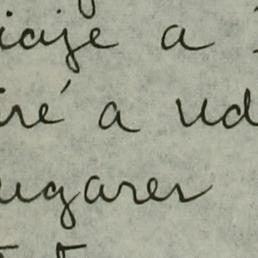 iaje a
iré a Ud
ugares